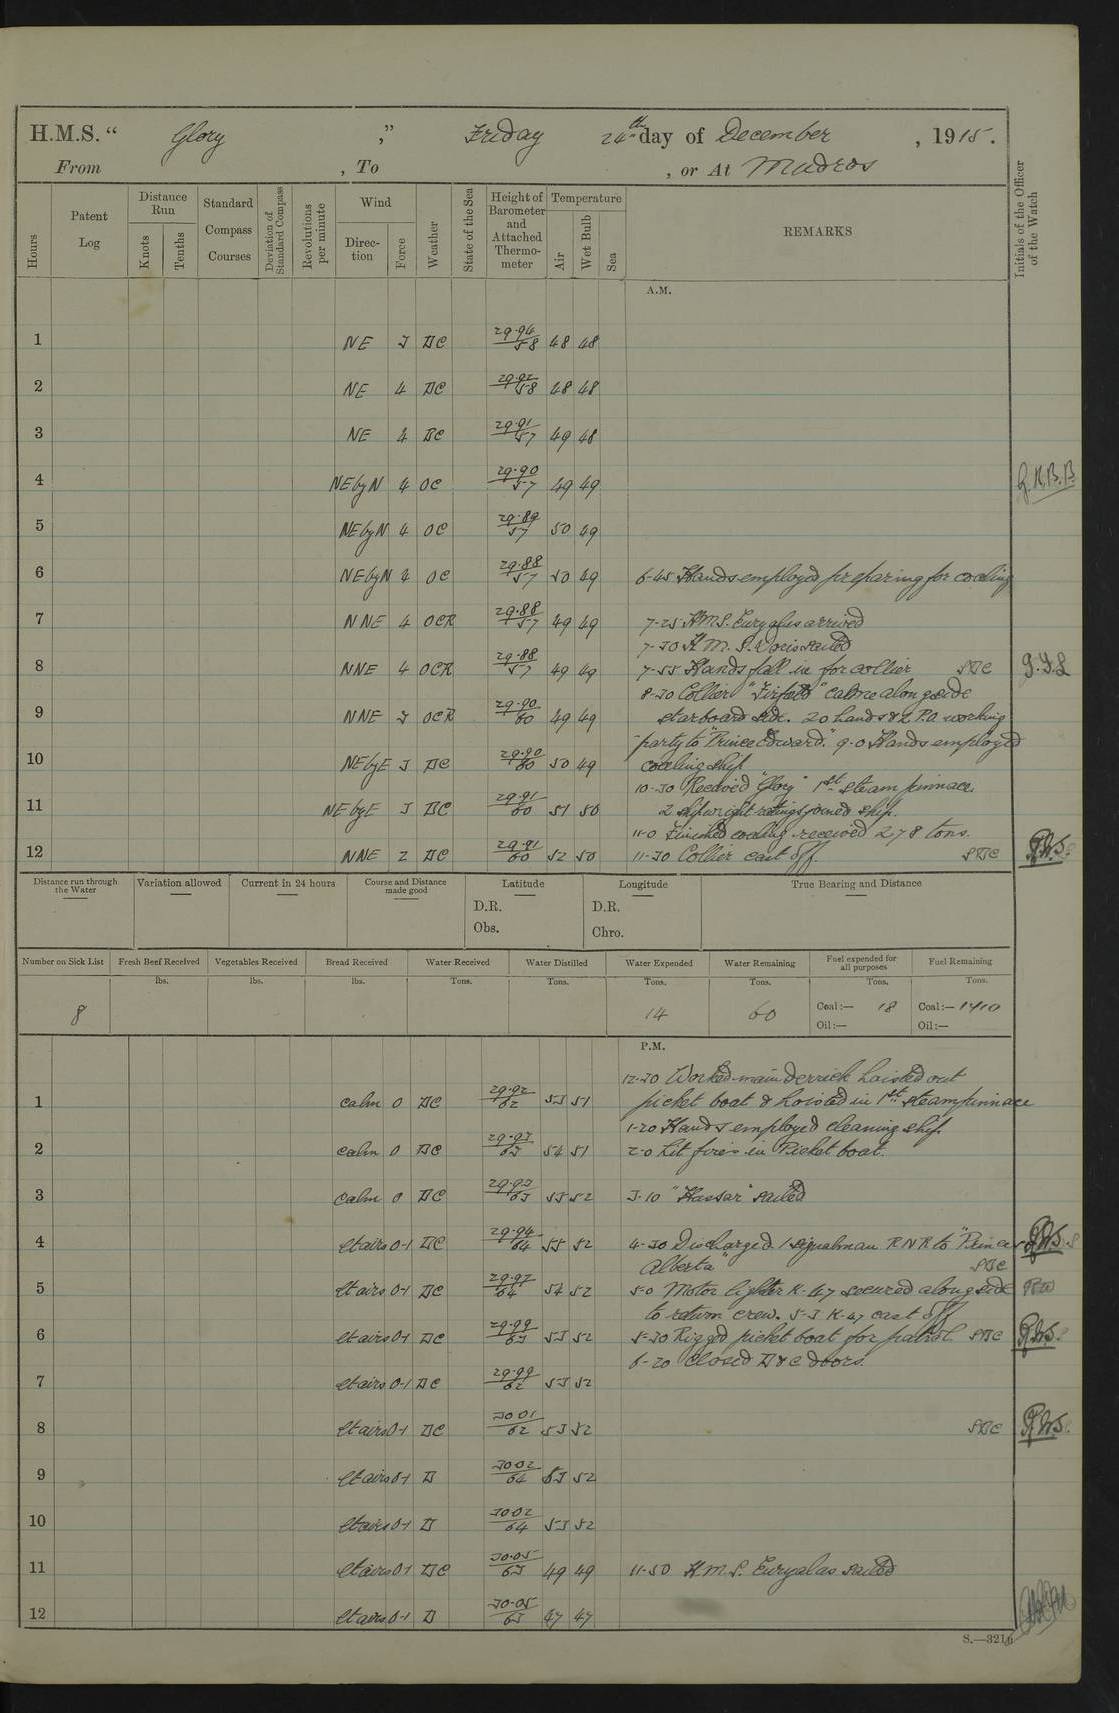 H.M.S. “ Glory ,” Friday 24th day of December , 1915.
From , To , or At Mudros
Hours
Patent Log
Distance Run
Knots
Tenths
Standard Compass Courses
Deviation of Standard Compass
Revolutions per minute
Wind
Direction
Force
Weather
State of the Sea
Height of Barometer and Attached Thermometer
Temperature
Air
Wet Bulb
Sea
REMARKS
Initials of the Officer of the Watch
A.M.
1 NE 3 BC 29.94/58 48 48
2 NE 4 BC 29.92/58 48 48
3 NE 4 BC 29.91/57 49 48
4 NE by N 4 OC 29.90/57 49 49
5 NE by N 4 OC 29.89/57 50 49
6 NE by N 4 OC 29.88/57 50 49 6-45 Hands employed preparing for coaling
7 NNE 4 OCR 29.88/57 49 49 7-25 H.M.S. Euryalus arrived
7-30 H.M.S. Doris sailed
8 NNE 4 OCR 29.88/57 49 49 7-55 Hands fall in for collier SBC
8-30 Collier came alongside
9 NNE 3 OCR 29.90/60 49 49 starboard side. 20 hands & 2 P.O. working
party to "Prince Edward." 9-0 Hands employed
10 NE by E 3 BC 29.90/60 50 49 coaling ship
10-30 Received "Glory" 1st steam pinnace.
11 NE by E 3 BC 29.91/60 51 50 2 shipwright ratings joined ship.
11-0 Finished coaling received 278 tons.
12 NNE 2 BC 29.91/60 52 50 11-30 Collier cast off SBC
Distance run through the Water
Variation allowed
Current in 24 hours
Course and Distance made good
Latitude
D.R.
Obs.
Longitude
D.R.
Chro.
True Bearing and Distance
Number on Sick List
Fresh Beef Received
Vegetables Received
Bread Received
Water Received
Water Distilled
Water Expended
Water Remaining
Fuel expended for all purposes
Fuel Remaining
lbs. lbs. lbs. Tons. Tons. Tons. Tons. Tons. Tons.
8 14 60 Coal:— 18 Coal:— 1410
Oil:— Oil:—
P.M.
12-30 Worked main derrick hoisted out
1 calm 0 BC 29.92/62 53 51 picket boat & hoisted in 1st steam pinnace
1-20 Hands employed cleaning ship
2 calm 0 BC 29.93/63 54 51 2-0 Lit fires in Picket boat.
3 calm 0 BC 29.93/63 53 52 3-10 "Hassar" sailed
4 lt airs 0-1 BC 29.94/64 55 52 4-30 Discharged 1 signalman R N R to "Princess
Alberta" SBC
5 lt airs 0-1 BC 29.97/64 54 52 5-0 Motor lighter K-47 secured alongside
to return crew. 5-3 K-47 cast off
6 lt airs 0-1 BC 29.99/63 53 52 5-30 Rigged picket boat for patrol SBC
6-20 Closed B & C doors.
7 lt airs 0-1 BC 29.99/62 53 52
8 lt airs 0-1 BC 30.01/62 53 52 SBC
9 lt airs 0-1 B 30.02/64 53 52
10 lt airs 0-1 B 30.02/64 53 52
11 lt airs 0-1 BC 30.05/63 49 49 11-50 H.M.S. Euryalas sailed
12 lt airs 0-1 B 30.05/63 47 47
S.—3216